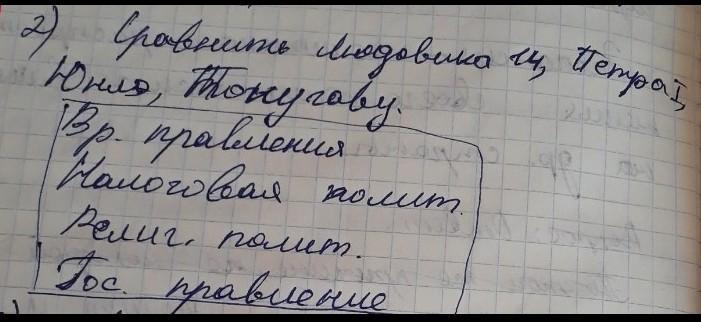 2) Сравнить Людовика 14, Петра I,
Юнлэ, Токугаву.
Вр. правления
Налоговая полит.
Религ. полит.
Гос. правление